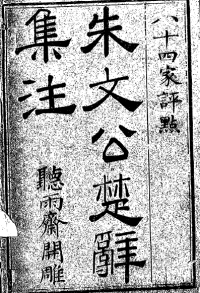 八十四家評點
朱文公楚辭
集注
聽雨齋開雕